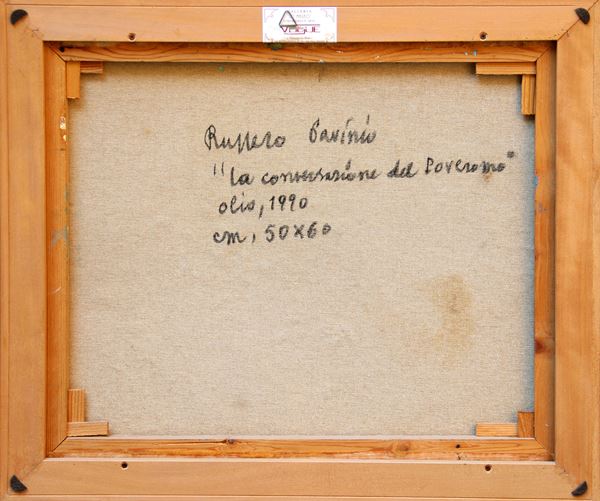 VOGUE
Ruggero Savinio
"La conversazione del Poveromo"
olio, 1990
cm, 50x60